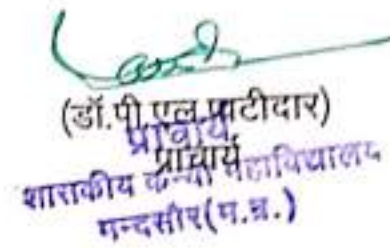 (डॉ.पी.एल.पाटीदार)
प्राचार्य
प्राचार्य
शासकीय कन्या महाविद्यालय
मन्दसौर(म.प्र.)